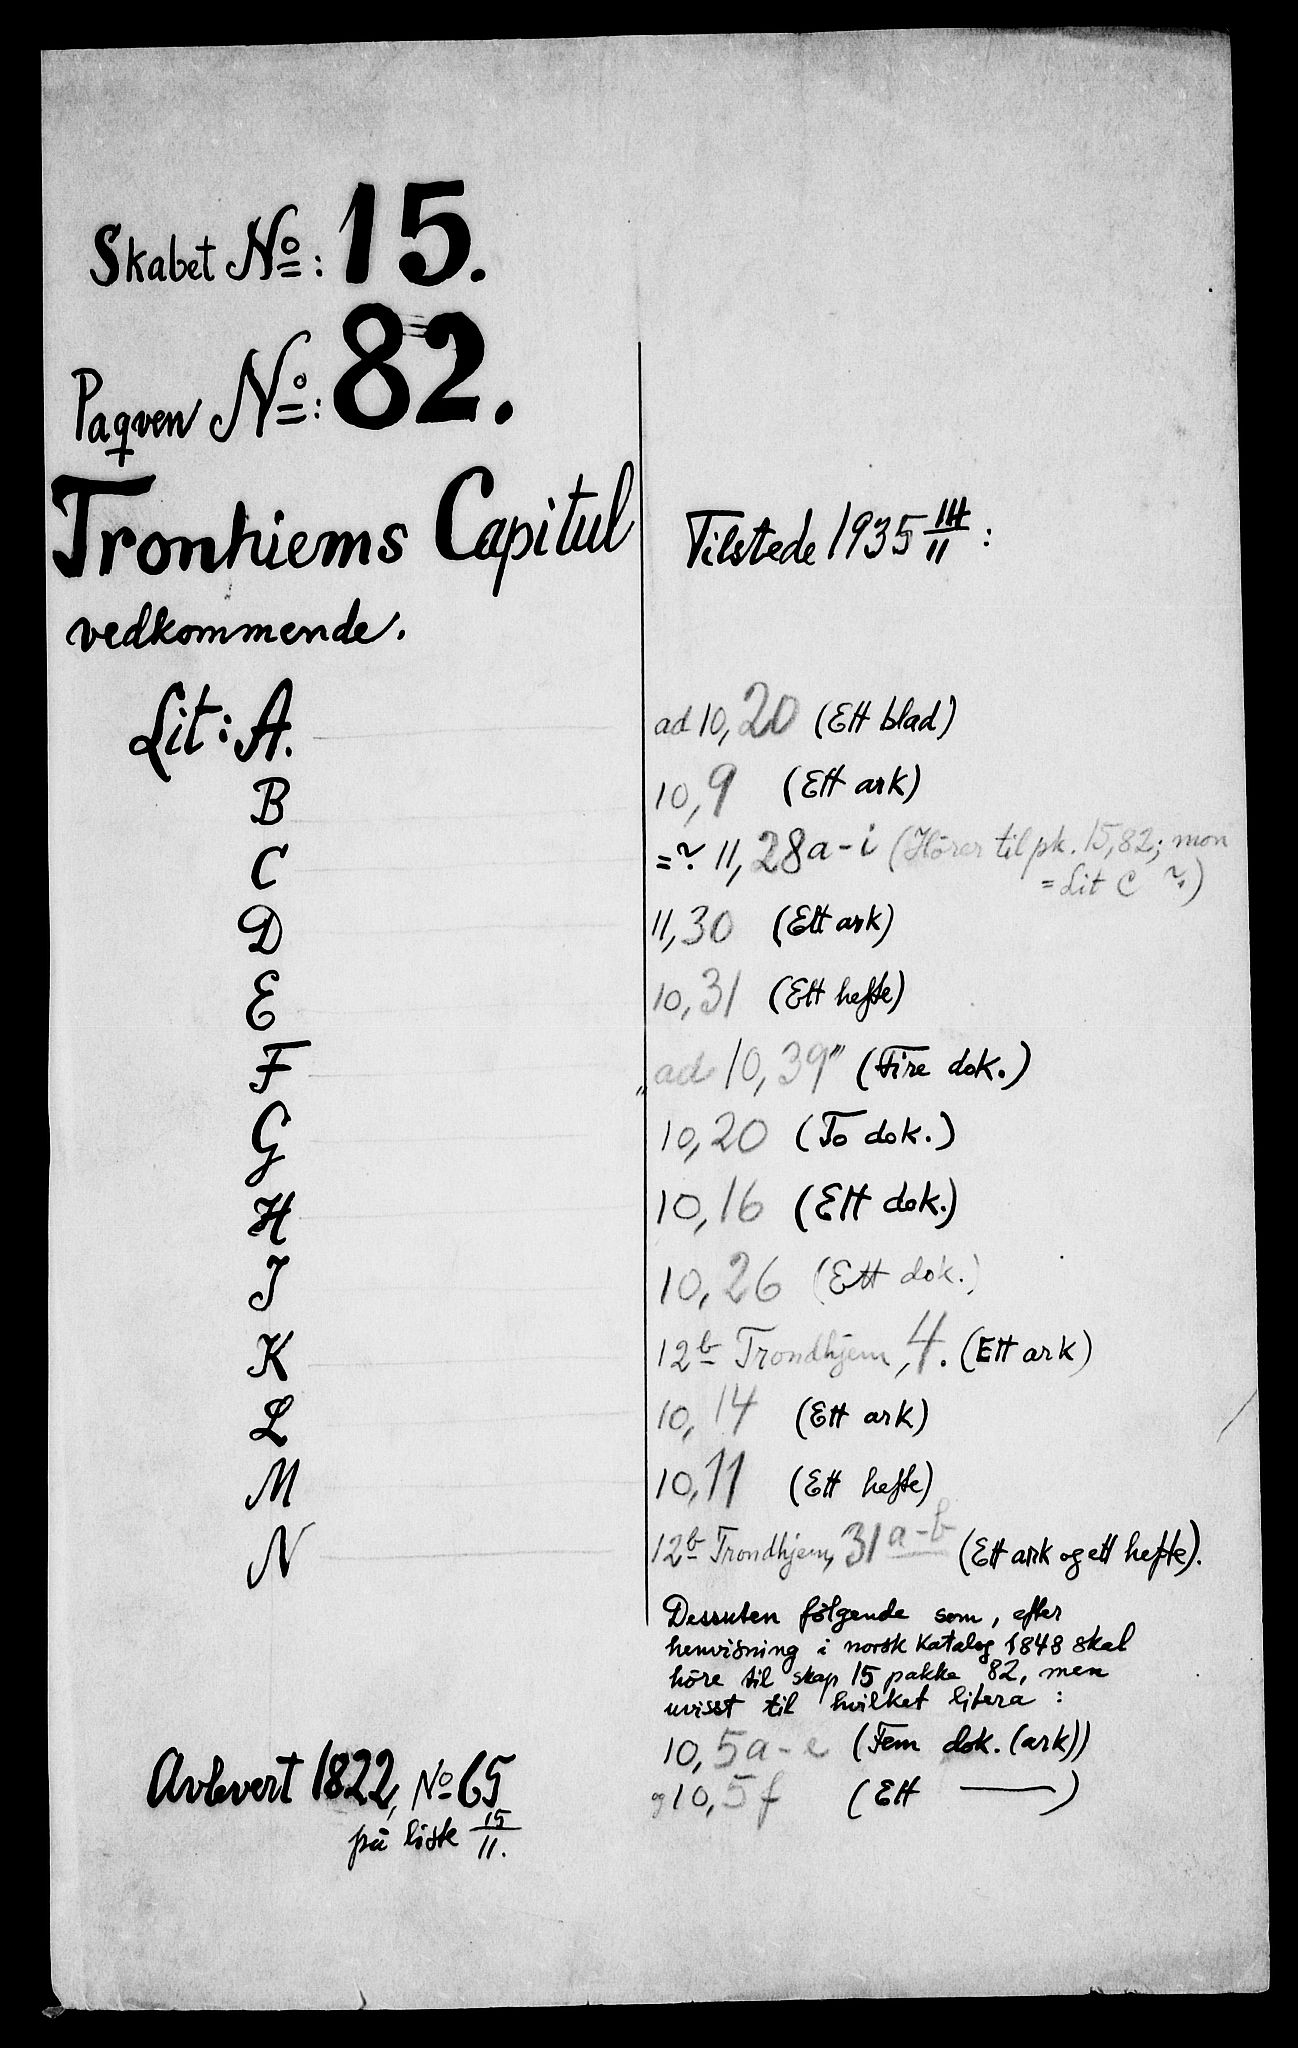 Skabet No: 15.
Paqven No: 82.
Tronhiems Capitul
vedkommende.
Tilstede 1935 14/11 :
Lit: A. ad 10,20 (Ett blad)
B 10,9 (Ett ark)
C =? 11,28a-i (Hörer til pk. 15,82; mon
= Lit C ?)
D 11,30 (Ett ark)
E 10,31 (Ett hefte)
F "ad 10,39" (Fire dok.)
G 10,20 (To dok.)
H 10,16 (Ett dok.)
J 10,26 (Ett dok.)
K 12b Trondhjem, 4. (Ett ark)
L 10,14 (Ett ark)
M 10,11 (Ett hefte)
N 12b Trondhjem, 31a-b (Ett ark og ett hefte).
Dessuten følgende som, efter
henvisning i norsk Katalog 1848 skal
höre til skap 15 pakke 82, men
uvisst til hvilket litera :
10,5a-e (Fem dok. (ark))
g 10,5f (Ett —)
Avlevert 1822, No 65
på liste 15/11.